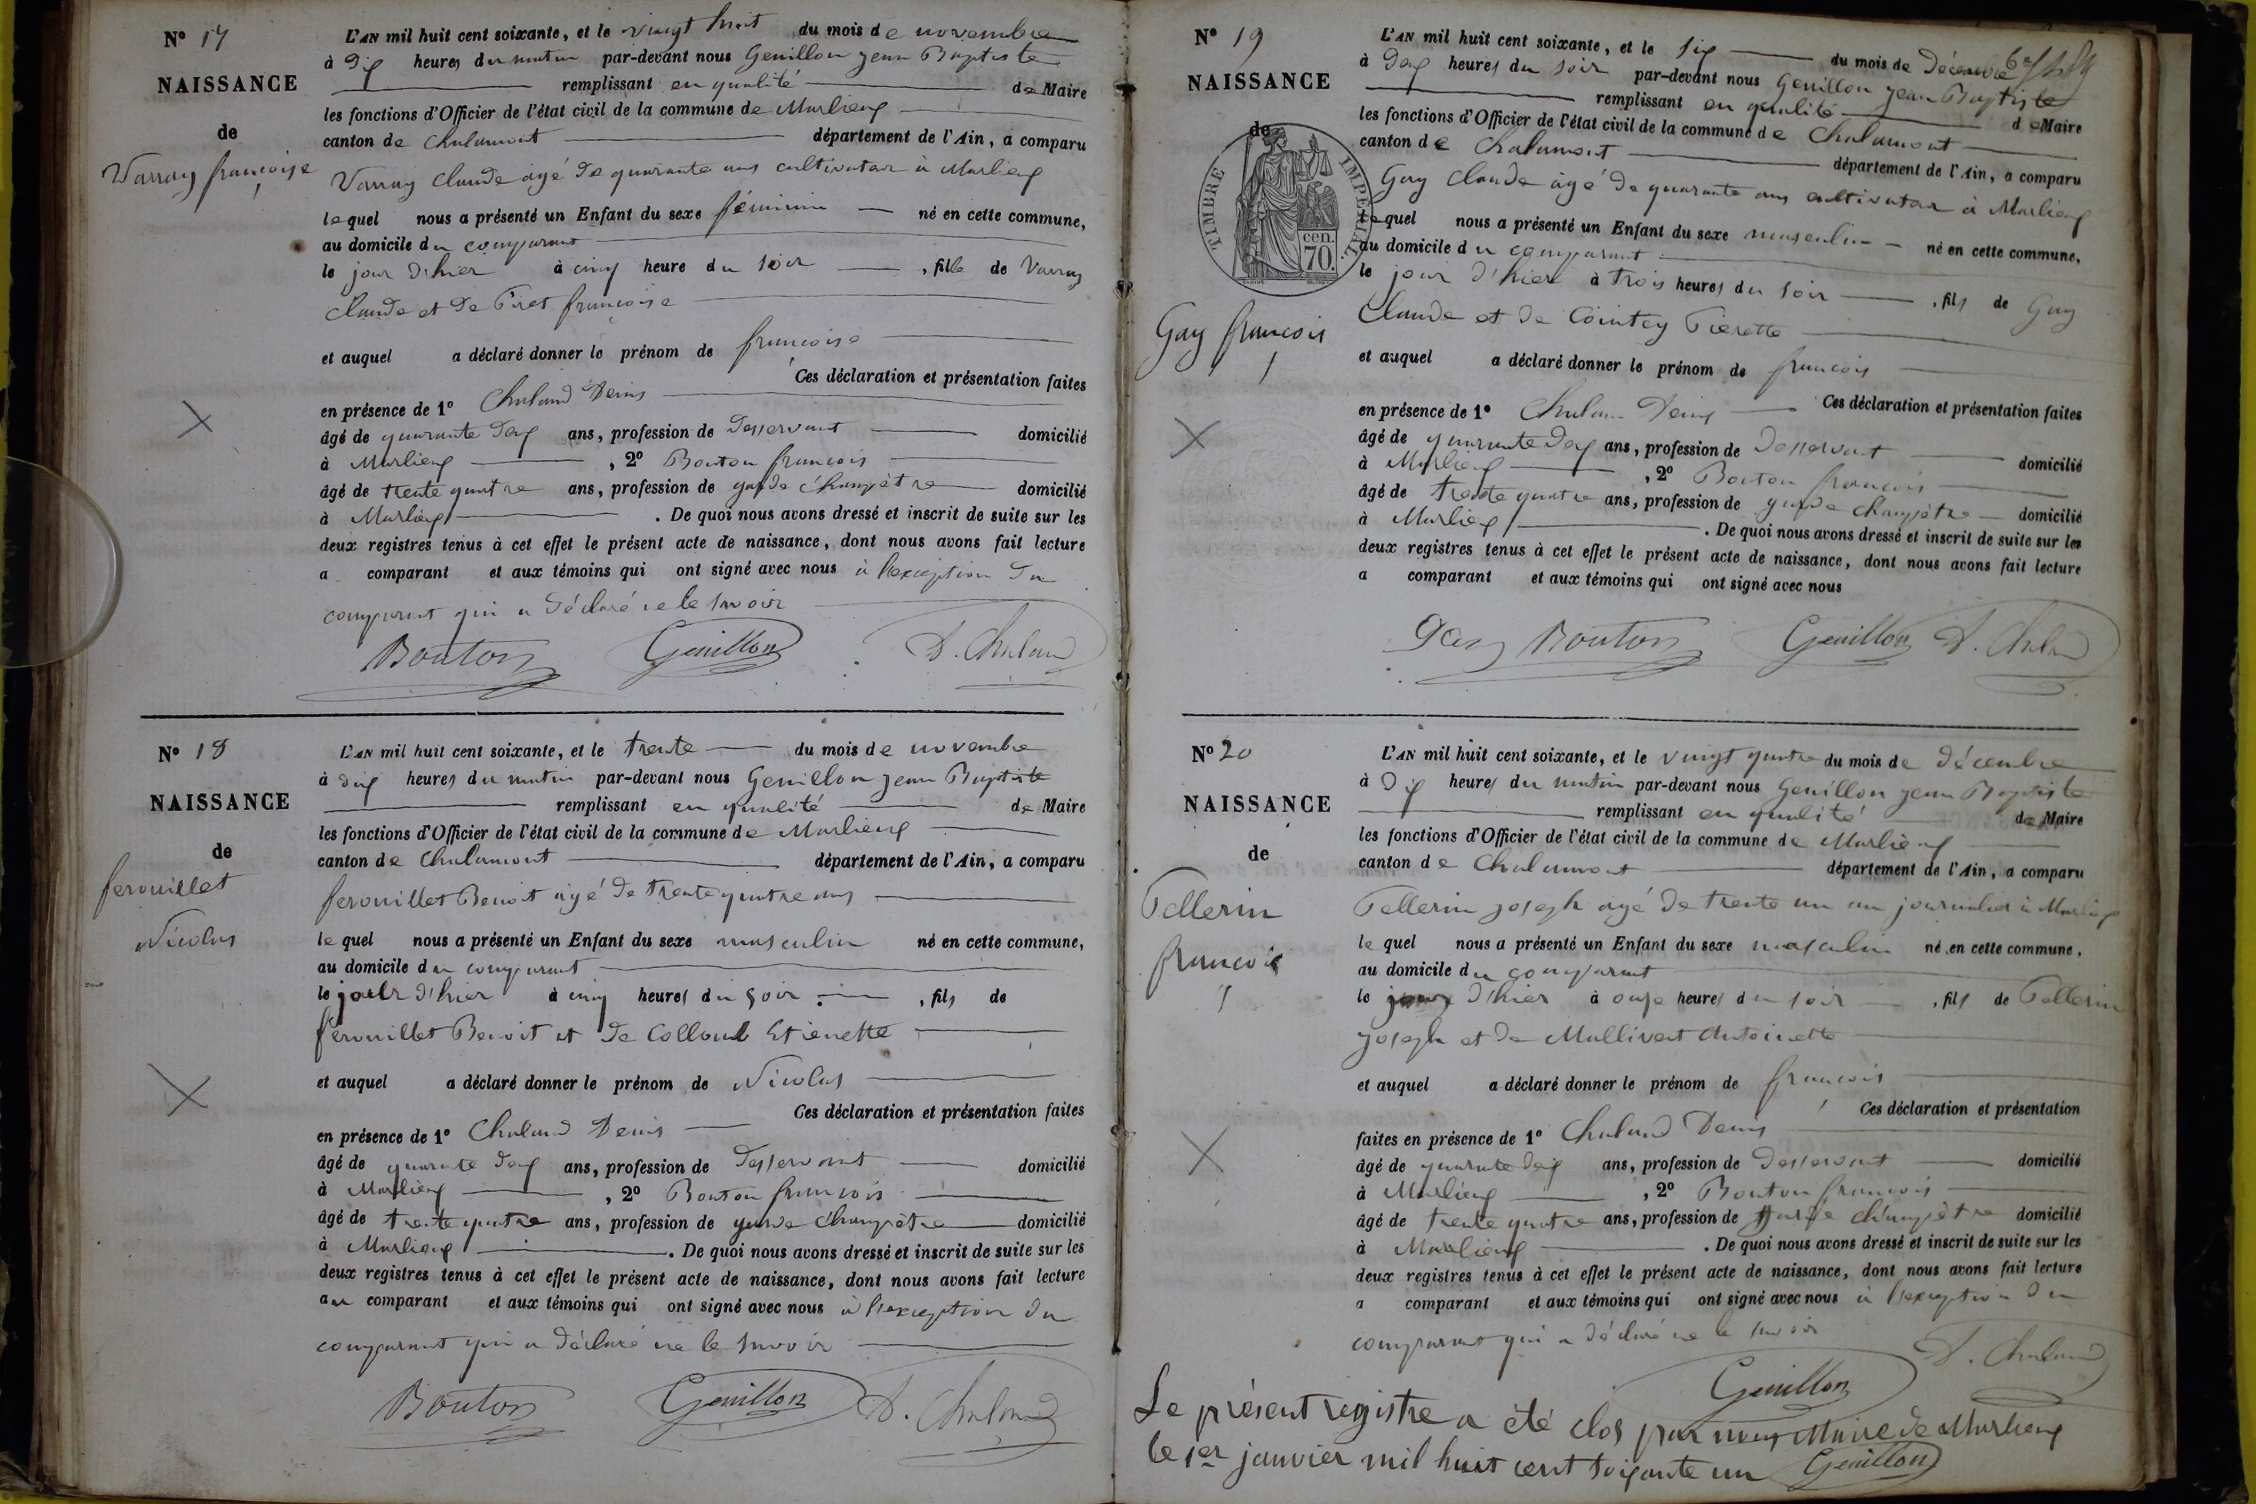 N° 17
NAISSANCE
de
Varray françoise
L'AN mil huit cent soixante, et le vingt huit du mois de novembre
à dix heures du matin par-devant nous Genillon jean Baptiste
remplissant en qualité de Maire
les fonctions d'Officier de l'état civil de la commune de Marlieux
canton de Chalamont département de l'Ain, a comparu
Varray Claude agé de quarante ans cultivateur à Marlieux
lequel nous a présenté un Enfant du sexe féminin né en cette commune,
au domicile du comparant
le jour d'hier à cinq heure du soir, fille de Varray
Claude et de Piret françoise
et auquel a déclaré donner le prénom de françoise
Ces déclaration et présentation faites
en présence de 1° Chaland Denis
âgé de quarante deux ans, profession de Desservant domicilié
à Marlieux, 2° Bouton françois
âgé de trente quatre ans, profession de garde champêtre domicilié
à Marlieux. De quoi nous avons dressé et inscrit de suite sur les
deux registres tenus à cet effet le présent acte de naissance, dont nous avons fait lecture
a comparant et aux témoins qui ont signé avec nous à l'exception du
comparant qui a déclaré ne le savoir
Bouton Genillon D. Chaland
N° 18
NAISSANCE
de
ferouillet
Nicolas
L'AN mil huit cent soixante, et le trente du mois de novembre
à dix heures du matin par-devant nous Genillon jean Baptiste
remplissant en qualité de Maire
les fonctions d'Officier de l'état civil de la commune de Marlieux
canton de Chalamont département de l'Ain, a comparu
ferouillet Benoit agé de trente quatre ans
lequel nous a présenté un Enfant du sexe masculin né en cette commune,
au domicile du comparant
le jour d'hier à cinq heures du soir, fils de
ferouillet Benoit et de Colloud Etienette
et auquel a déclaré donner le prénom de Nicolas
Ces déclaration et présentation faites
en présence de 1° Chaland Denis
âgé de quarante deux ans, profession de Desservant domicilié
à Marlieux, 2° Bouton françois
âgé de trente quatre ans, profession de garde champêtre domicilié
à Marlieux. De quoi nous avons dressé et inscrit de suite sur les
deux registres tenus à cet effet le présent acte de naissance, dont nous avons fait lecture
au comparant et aux témoins qui ont signé avec nous à l'exception du
comparant qui a déclaré ne le savoir
Bouton Genillon D. Chaland
N° 19
NAISSANCE
de
TIMBRE IMPERIAL
cen. 70.
Gay françois
L'AN mil huit cent soixante, et le six du mois de Décembre
à deux heures du soir par-devant nous Genillon jean Baptiste
remplissant en qualité de Maire
les fonctions d'Officier de l'état civil de la commune de Chalamont
canton de Chalamont département de l'Ain, a comparu
Gay Claude âgé de quarante ans cultivateur à Marlieux
lequel nous a présenté un Enfant du sexe masculin né en cette commune,
au domicile du comparant
le jour d'hier à trois heures du soir, fils de Gay
Claude et de Cointey Pierette
et auquel a déclaré donner le prénom de françois
Ces déclaration et présentation faites
en présence de 1° Chalan Denis
âgé de quarante deux ans, profession de Desservant domicilié
à Marlieux, 2° Bouton françois
âgé de trente quatre ans, profession de garde champêtre domicilié
à Marlieux. De quoi nous avons dressé et inscrit de suite sur les
deux registres tenus à cet effet le présent acte de naissance, dont nous avons fait lecture
a comparant et aux témoins qui ont signé avec nous
Gay Bouton Genillon D. Chaland
N° 20
NAISSANCE
de
Pellerin
françois
L'AN mil huit cent soixante, et le vingt quatre du mois de décembre
à dix heures du matin par-devant nous Genillon jean Baptiste
remplissant en qualité de Maire
les fonctions d'Officier de l'état civil de la commune de Marlieux
canton de Chalamont département de l'Ain, a comparu
Pellerin joseph agé de trente un an journalier à Marlieux
lequel nous a présenté un Enfant du sexe masculin né en cette commune.
au domicile du comparant
le jour d'hier à onze heures du soir, fils de Pellerin
joseph et de Mallivert Antoinette
et auquel a déclaré donner le prénom de françois
Ces déclaration et présentation
faites en présence de 1° Chaland Denis
âgé de quarante deux ans, profession de Desservant domicilié
à Marlieux, 2° Bouton françois
âgé de trente quatre ans, profession de garde champêtre domicilié
à Marlieux. De quoi nous avons dressé et inscrit de suite sur les
deux registres tenus à cet effet le présent acte de naissance, dont nous avons fait lecture
a comparant et aux témoins qui ont signé avec nous à l'exception du
comparant qui a déclaré ne le savoir
Genillon D. Chaland
Le présent registre a été clos par nous Maire de Marlieux
le 1er janvier mil huit cent soixante un Genillon